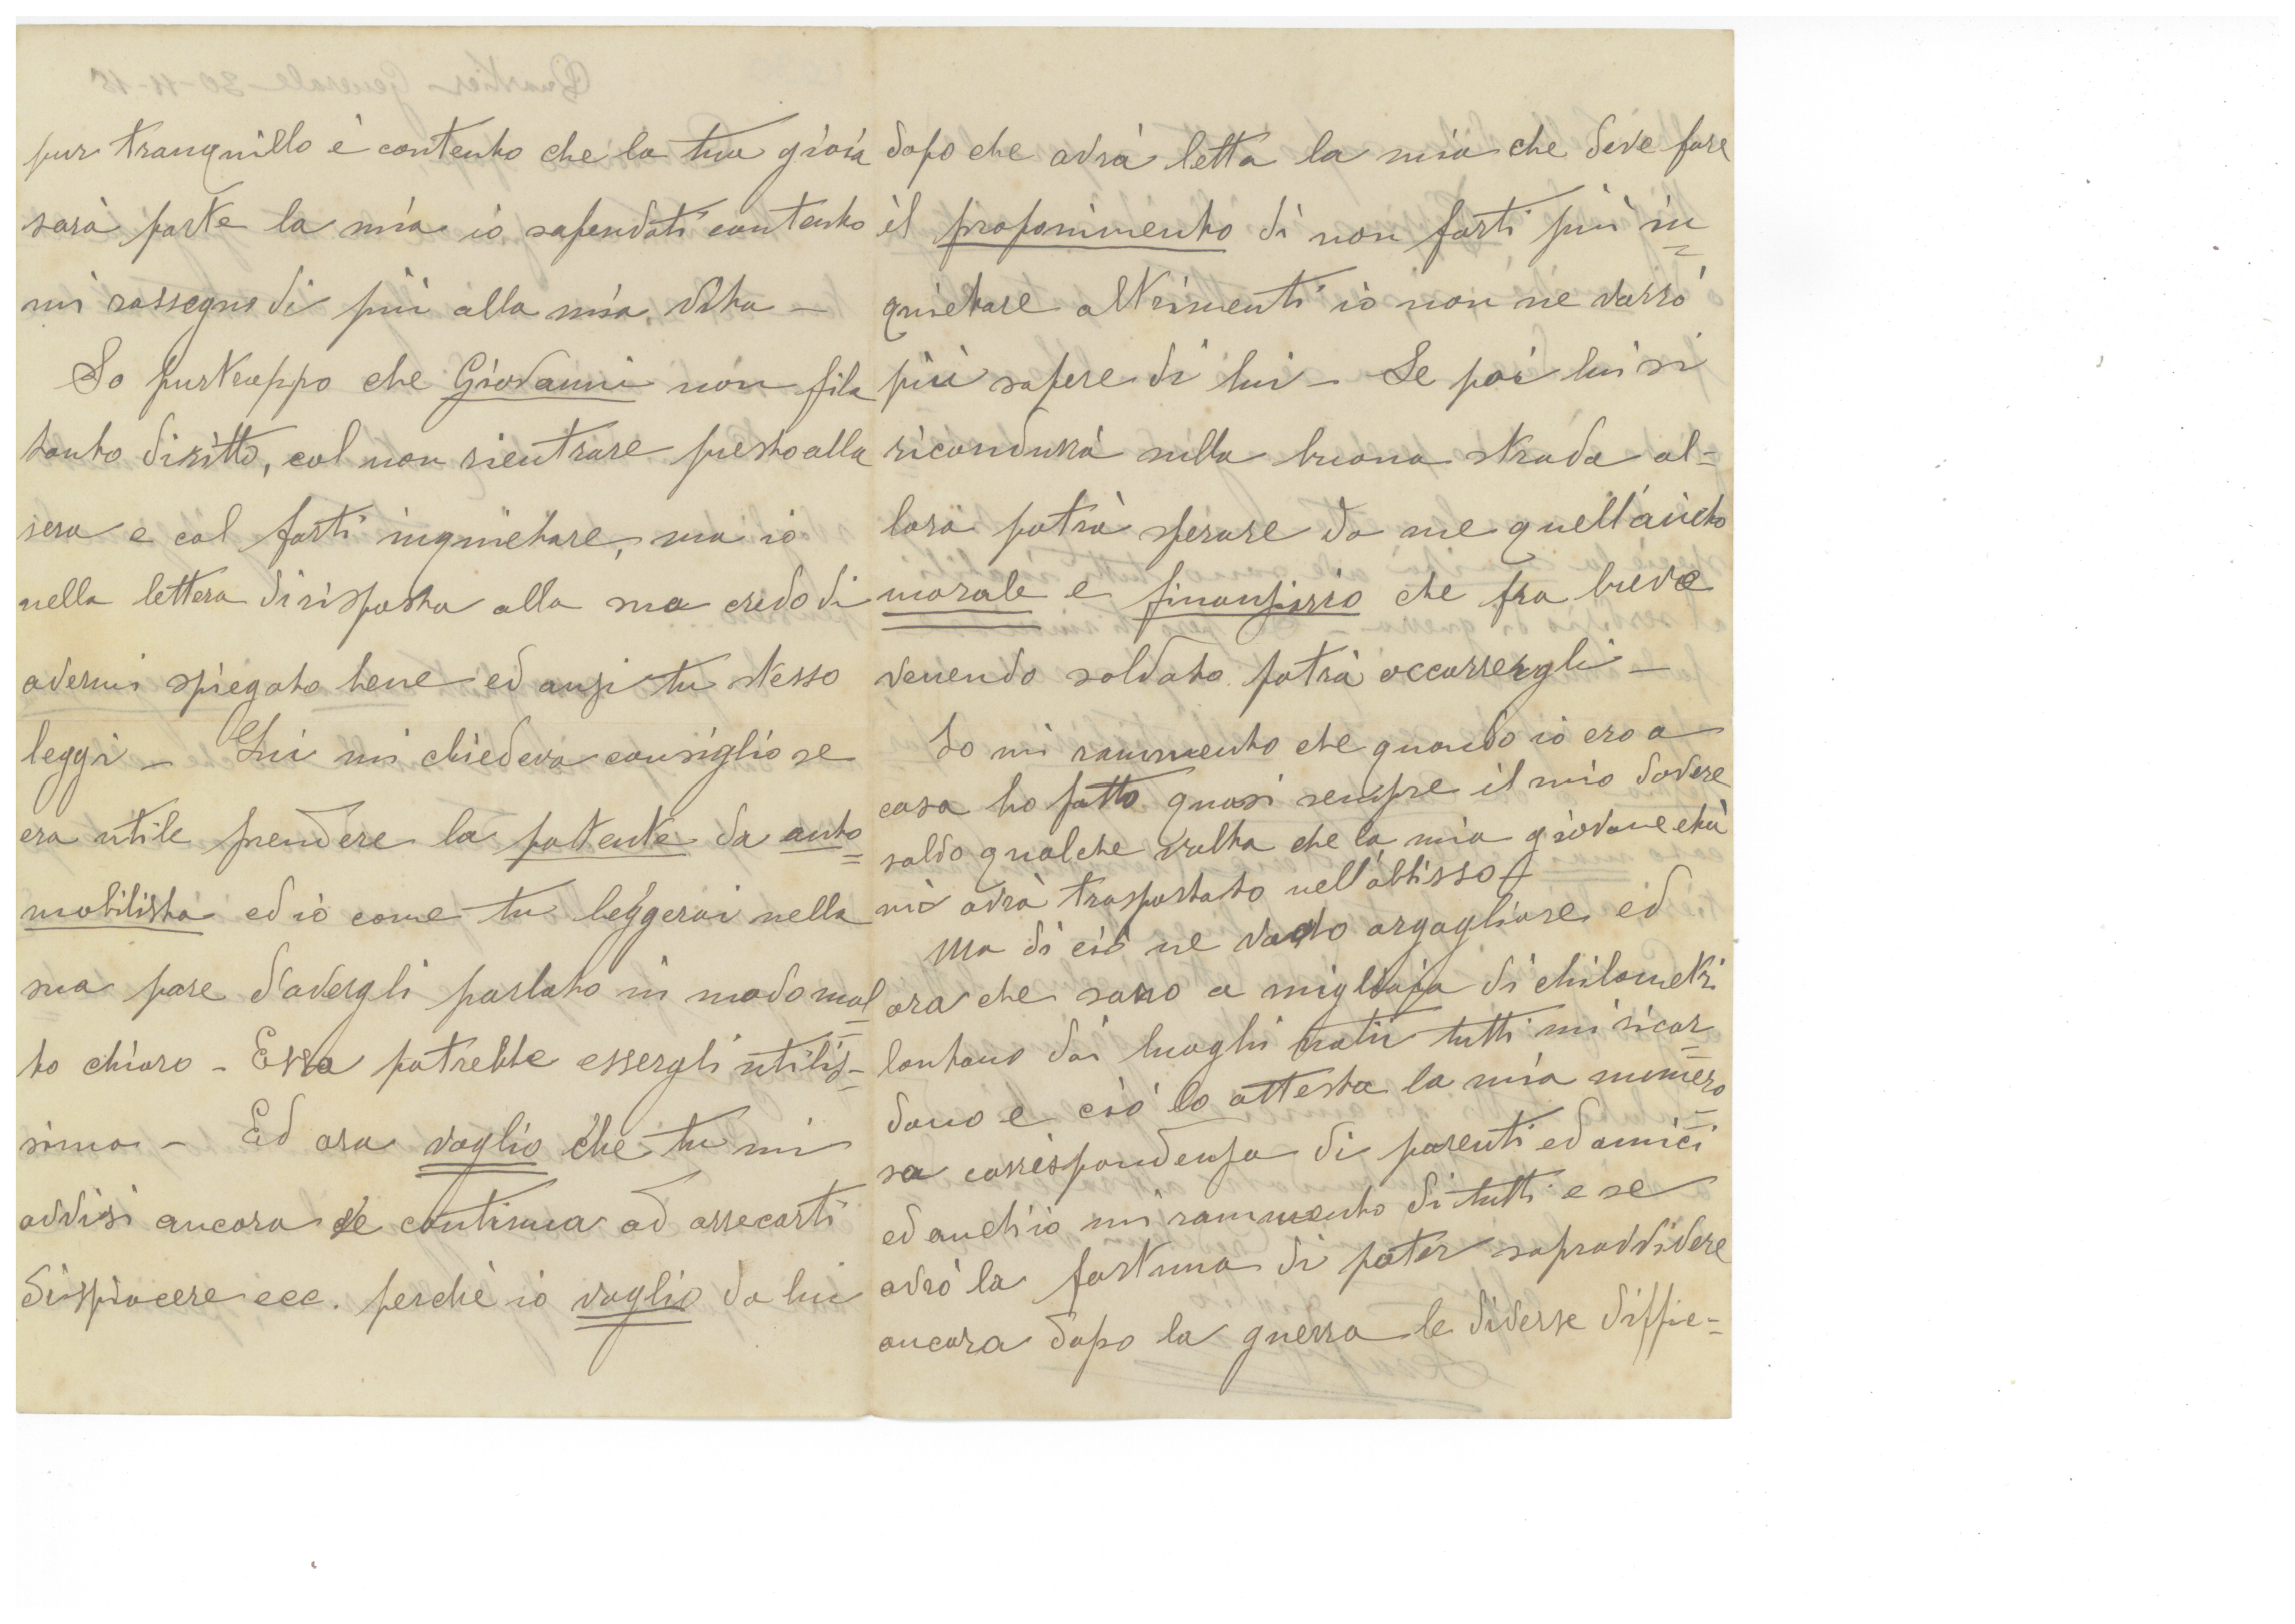 pur tranquillo è contento che la tua gioia
sarà parte la mia io sapendoti contento
mi rassegno di più alla mia vita -
So purtroppo che Giovanni non fila
tanto diritto, col non rientrare presto alla
sera e col farti inquietare, ma io
nella lettera di risposta alla sua credo di
avermi spiegato bene ed anzi tu stesso
leggi - Lui mi chiedeva consiglio se
era utile prendere la patente da auto=
mobilista ed io come tu leggerai nella
sua pare d'avergli parlato in modo mol=
to chiaro - Essa potrebbe essergli utilis=
sima - Ed ora voglio che tu mi
avvisi ancora se continua ad arrecarti
dispiacere ecc. perchè io voglio da lui
dopo che avrà letta la mia che deve fare
il proponimento di non farti più in=
quietare altrimenti io non ne varrò
più sapere di lui - Se poi lui si
ricondurrà sulla buona strada al=
lora potrà sperare da me quell'aiuto
morale e finanziario che fra breve
venendo soldato potrà occorrergli -
Io mi rammento che quando io ero a
casa ho fatto quasi sempre il mio dovere
saldo qualche volta che la mia giovane età
mi avrà trasportato nell'abbisso -
Ma di ciò ne vado orgogliose ed
ora che sono a migliaja di chilometri
lontano dai luoghi natii tutti mi ricor=
dano e ciò lo attesta la mia numero=
sa corrispondenza di parenti ed amici
ed anch'io mi rammento di tutti e se
avrò la fortuna di poter sopravvivere
ancora dopo la guerra le diverse diffic=
Quartier Generale 30-11-18